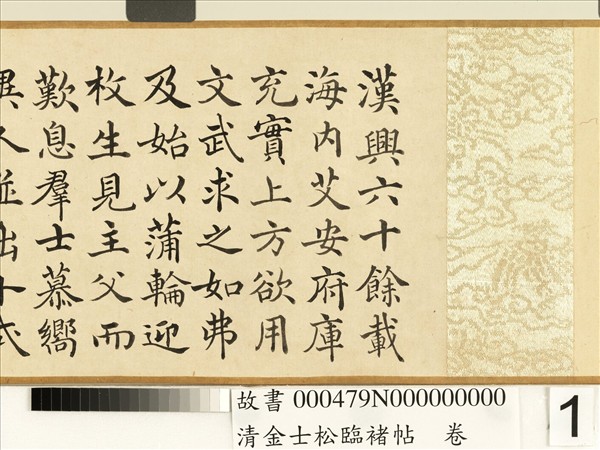 漢興六十餘載
海内艾安府庫
充實上方欲用
文武求之如弗
及始以蒲輪迎
枚生見主父而
歎息羣士慕嚮
異人並出卜式
故書 000479N000000000
清金士松臨褚帖 卷
1